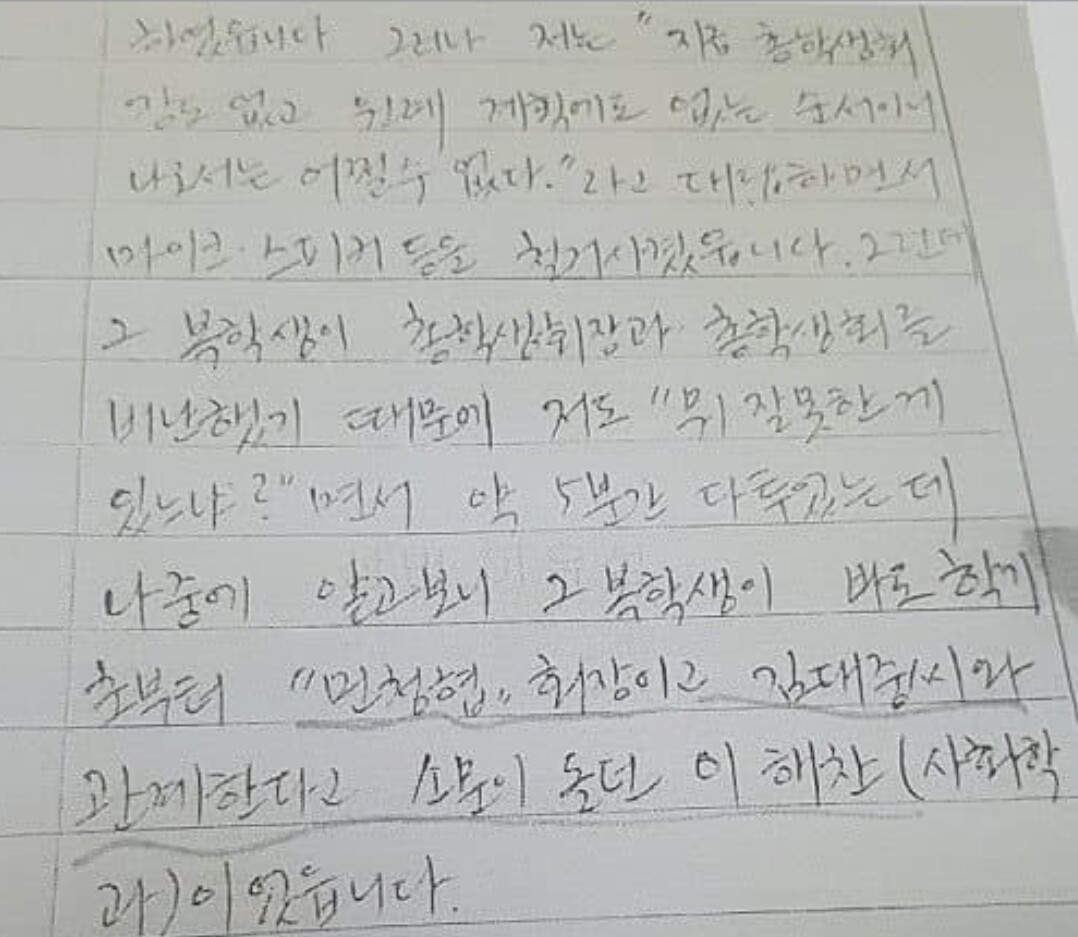 하였읍니다 그러나 저는 "지금 총학생회
장도 없고 원래 계획에도 없는 순서이니
나로서는 어쩔수 없다."라고 대답하면서
마이크·스피커 등을 철거시켰읍니다. 그런데
그 복학생이 총학생회장과 총학생회를
비난했기 때문에 저도 "뭐 잘못한 게
있느냐?"면서 약 5분간 다투었는데
나중에 알고보니 그 복학생이 바로 학기
초부터 "민청협" 회장이고 김대중씨와
관계한다고 소문이 돌던 이해찬(사회학
과)이었읍니다.